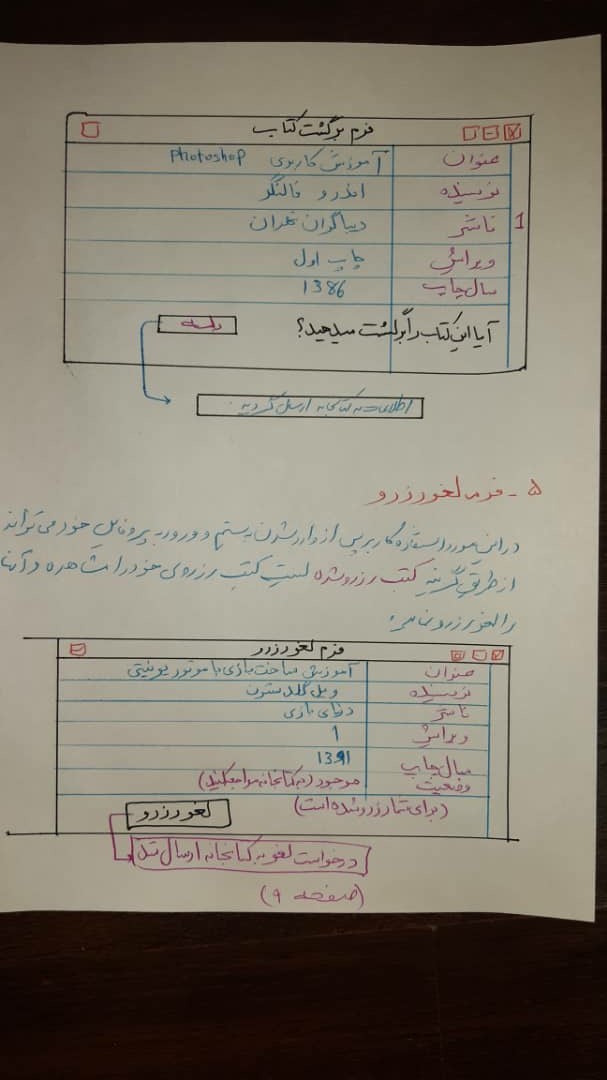 فرم برگشت کتاب
عنوان آموزش کاربردی Photoshop
نویسنده اندرو فالنگر
1 ناشر دیباگران تهران
ویرایش چاپ اول
سال چاپ 1386
آیا این کتاب را برگشت میدهید؟ بله
اطلاعات به کتابخانه ارسال گردید.
۵ - فرم لغو رزرو
در این مورد استفاده کاربر پس از وارد شدن به سیستم و ورود به پروفایل خود می تواند
از طریق گزینه کتب رزرو شده لیست کتب رزروی خود را مشاهده و آنها
را لغو رزرو نماید
فرم لغو رزرو
عنوان آموزش ساخت بازی با موتور یونیتی
نویسنده ویل گلدستون
ناشر دنیای بازی
ویرایش 1
سال چاپ 1391
وضعیت موجود (به کتابخانه مراجعه کنید)
(برای شما رزرو شده است)
لغو رزرو
درخواست لغو به کتابخانه ارسال شد
(صفحه ۹)